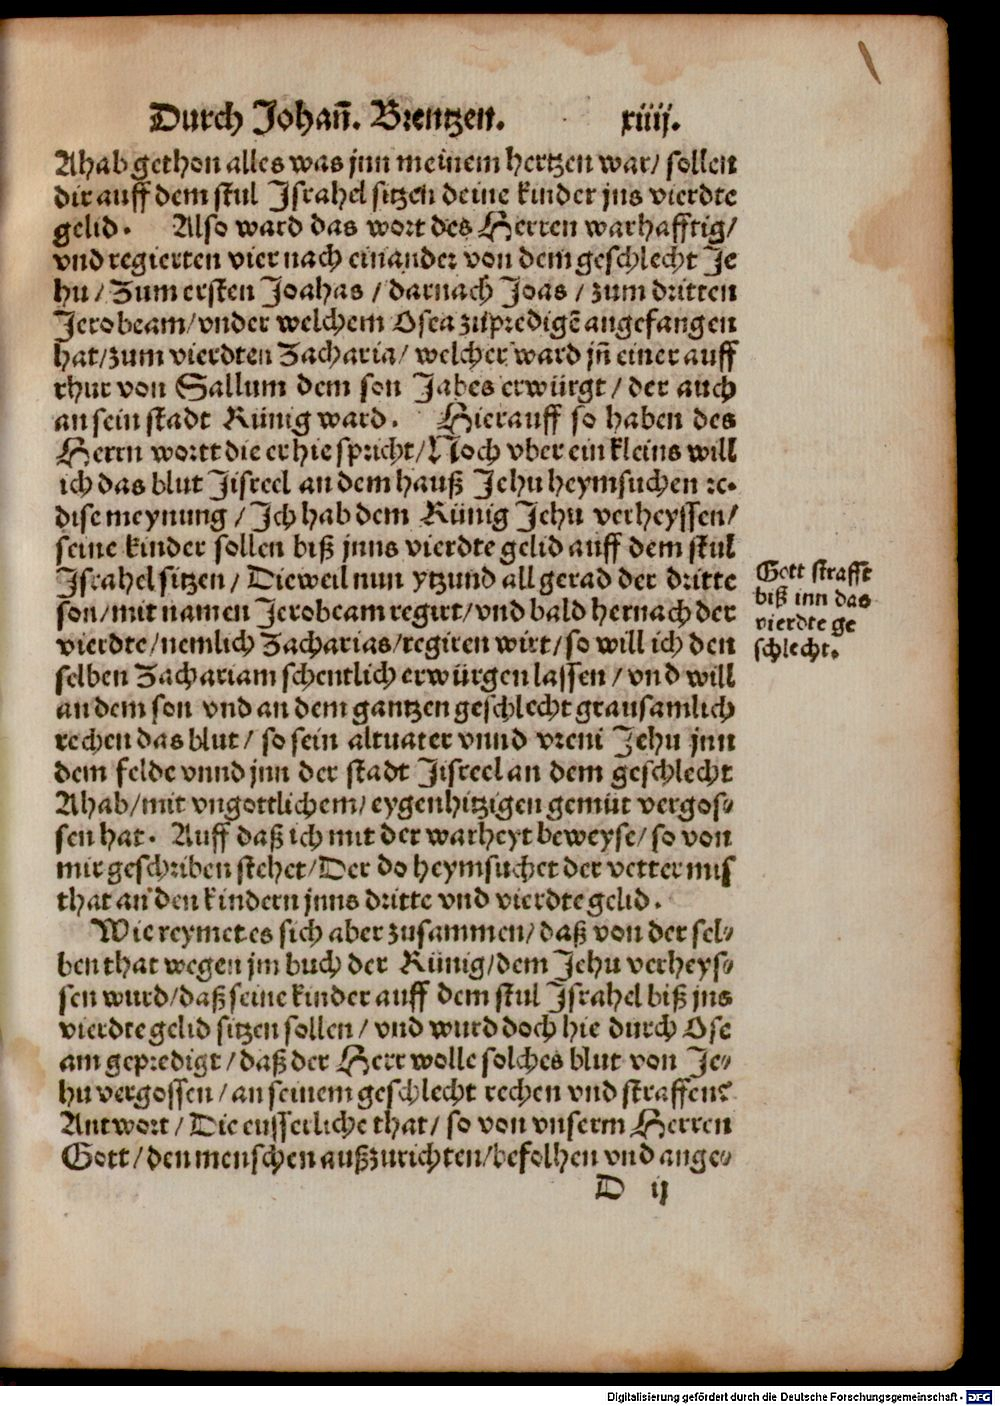 Durch Johan̄. Brentzen. xiiij.
Ahab gethon alles was jnn meinem hertzen war/ sollen
dir auff dem stul Jsrahel sitzen deine kinder jns vierdte
gelid. Also ward das wort des Herren warhafftig/
vnd regierten vier nach einander von dem geschlecht Je
hu/ Zum ersten Joahas/ darnach Joas/ zum dritten
Jerobeam/ vnder welchem Osea zůpredigē angefangen
hat/ zum vierdten Zacharia/ welcher ward jn̄ einer auff
rhur von Sallum dem son Jabes erwürgt/ der auch
an sein stadt Künig ward. Hierauff so haben des
Herrn wortt die er hie spricht/ Noch vber ein kleins will
ich das blut Jisreel an dem hauß Jehu heymsuchen ꝛc.
dise meynung/ Jch hab dem Künig Jehu verheyssen/
seine kinder sollen biß jnns vierdte gelid auff dem stul
Jsrahel sitzen/ Dieweil nun ytzund all gerad der dritte
son/ mit namen Jerobeam regirt/ vnd bald hernach der
vierdte/ nemlich Zacharias/ regiren wirt/ so will ich den
selben Zachariam schentlich erwürgen lassen/ vnd will
an dem son vnd an dem gantzen geschlecht grausamlich
rechen das blut/ so sein altuater vnnd vreni Jehu jnn
dem felde vnnd jnn der stadt Jisreel an dem geschlecht
Ahab/ mit vngottlichem/ eygenhitzigen gemüt vergos⸗
sen hat. Auff daß ich mit der warheyt beweyse/ so von
mir geschriben stehet/ Der do heymsuchet der vetter mis
that an den kindern jnns dritte vnd vierdte gelid.
Wie reymet es sich aber zusammen/ daß von der sel⸗
ben that wegen jm buch der Künig/ dem Jehu verheys⸗
sen wurd/ daß seine kinder auff dem stul Jsrahel biß jns
vierdte gelid sitzen sollen/ vnd wurd doch hie durch Ose
am gepredigt/ daß der Herr wolle solches blut von Je⸗
hu vergossen/ an seinem geschlecht rechen vnd straffen?
Antwort/ Die eusserliche that/ so von vnserm Herren
Gott/ den menschen außzurichten/ befolhen vnd ange⸗
D ij
Gott strafft
biß inn das
vierdte ge
schlecht.
Digitalisierung gefördert durch die Deutsche Forschungsgemeinschaft - DFG